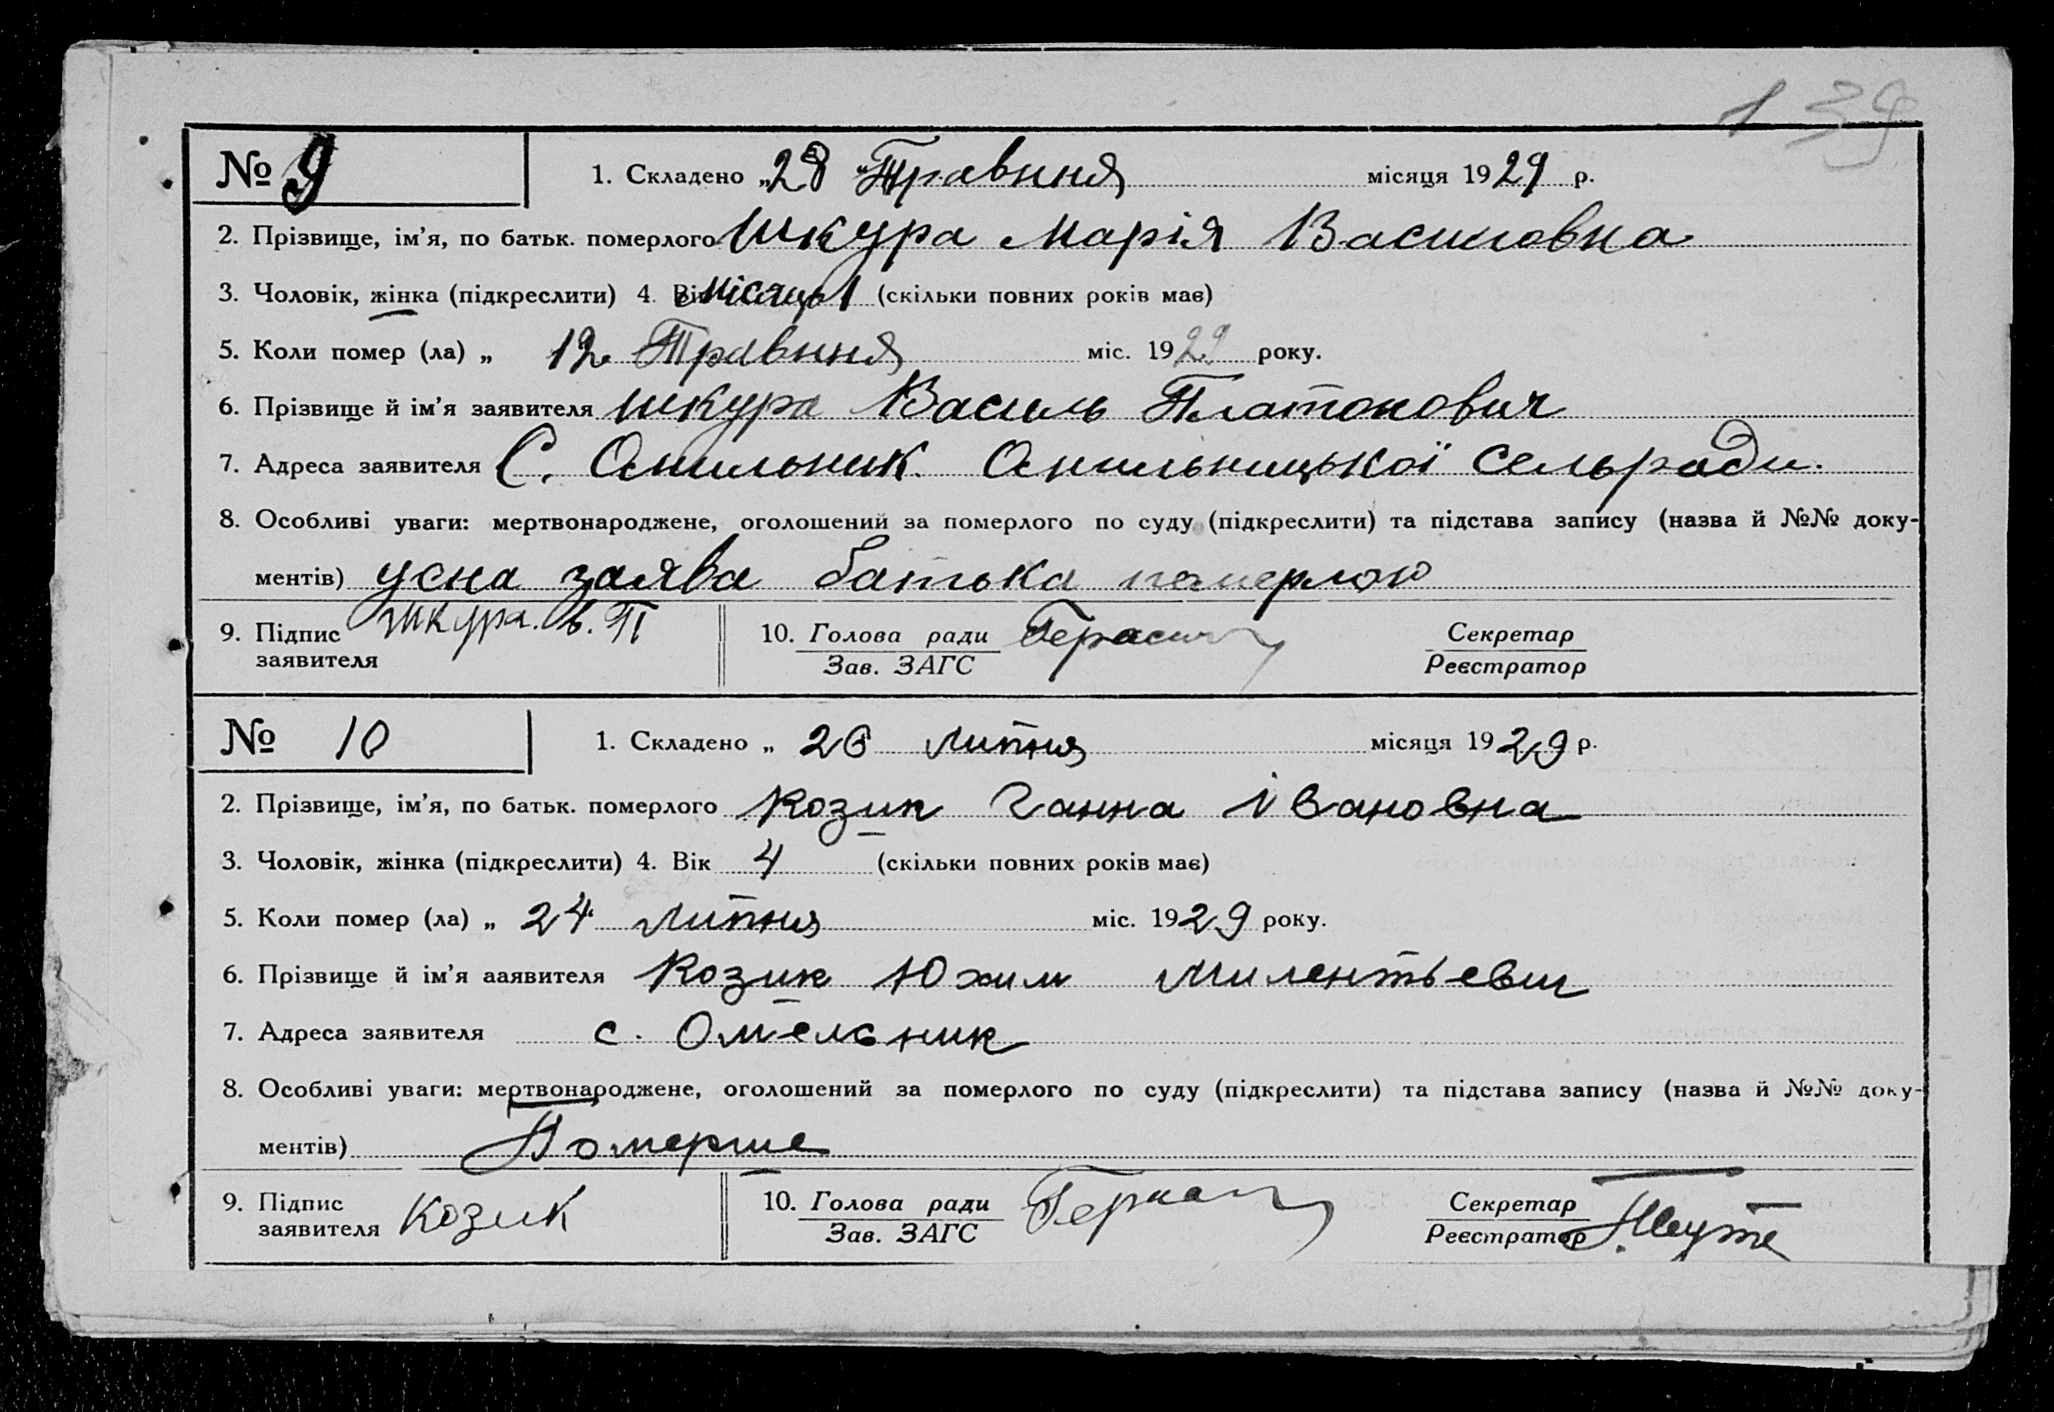 139
№ 9 1. Складено „28 „Травння місяця 1929 р.
2. Прізвище, ім'я, по батьк. померлого Шкура Марія Василовна
3. Чоловік, жінка (підкреслити) 4. Вік місяць 1 (скільки повних років має)
5. Коли помер (ла) „ 12 Травння міс. 1929 року.
6. Прізвище й ім'я заявителя Шкура Василь Платонович
7. Адреса заявителя С. Омильник Омильницької сельради.
8. Особливі уваги: мертвонароджене, оголошений за померлого по суду (підкреслити) та підстава запису (назва й №№ доку-
ментів) усна заява батька
9. Підпис заявителя Шкура. В. П 10. Голова ради Секретар
Зав. ЗАГС Реєстратор
№ 10 1. Складено „ 26 липня місяця 1929 р.
2. Прізвище, ім'я, по батьк. померлого Козик Ганна Івановна
3. Чоловік, жінка (підкреслити) 4. Вік 4 (скільки повних років має)
5. Коли помер (ла) „ 24 липня міс. 1929 року.
6. Прізвище й ім'я ааявителя Козик Юхим Милентьевич
7. Адреса заявителя с. Омельник
8. Особливі уваги: мертвонароджене, оголошений за померлого по суду (підкреслити) та підстава запису (назва й №№ доку-
ментів) Померше
9. Підпис заявителя Козик 10. Голова ради Секретар
Зав. ЗАГС Реєстратор